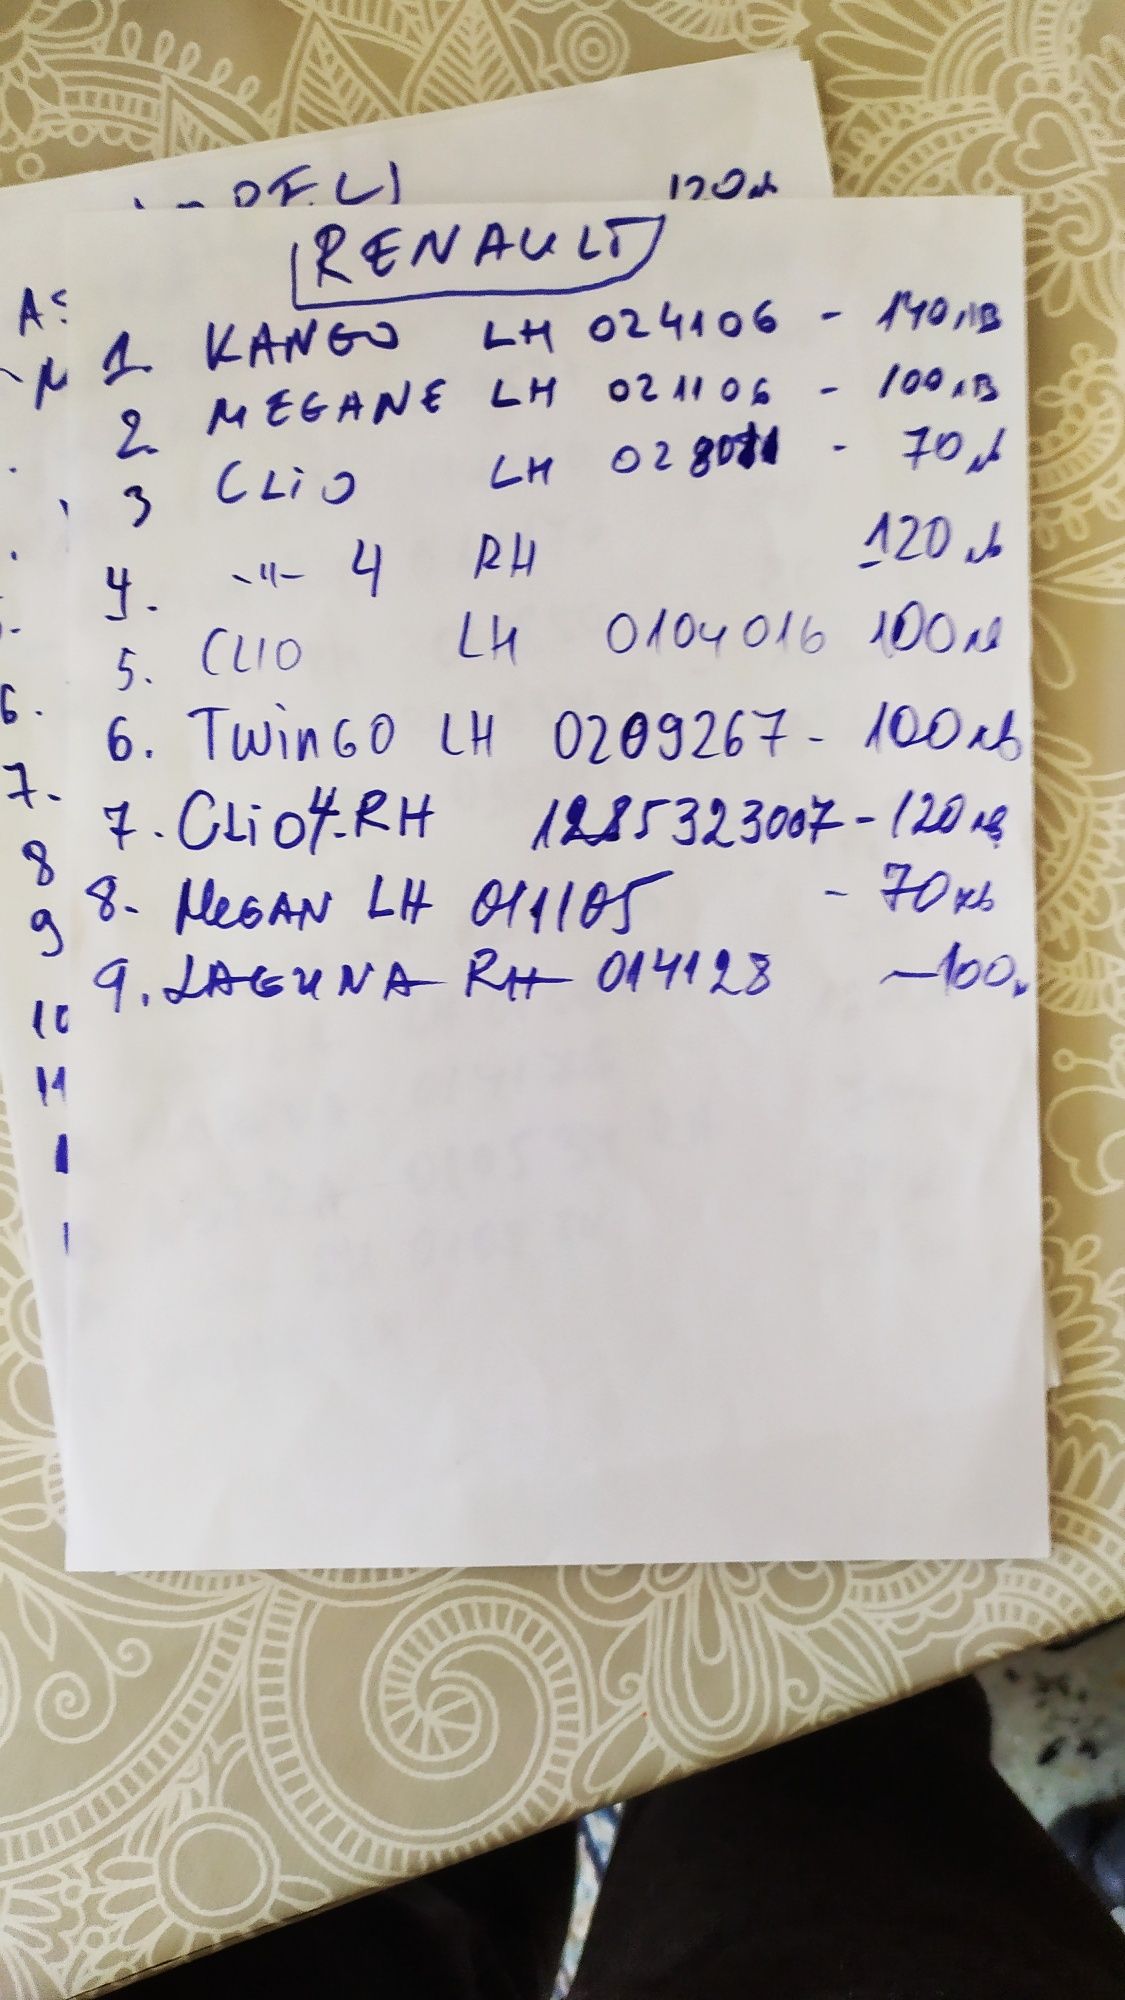 OPEL
120лв
RENAULT
1. KANGO LH 024106 - 140лв
2. MEGANE LH 021106 - 100лв
3 CLiO LH 028011 - 70лв
4. -"- 4 RH 120лв
5. CLIO LH 0104016 100лв
6. TWinGO LH 0209267 - 100лв
7. CLiO4-RH 1285323007 - 120лв
8. MeGAN LH 011105 - 70лв
9. LAGUNA RH 014128 - 100л
6.
7.
8
9
10
11